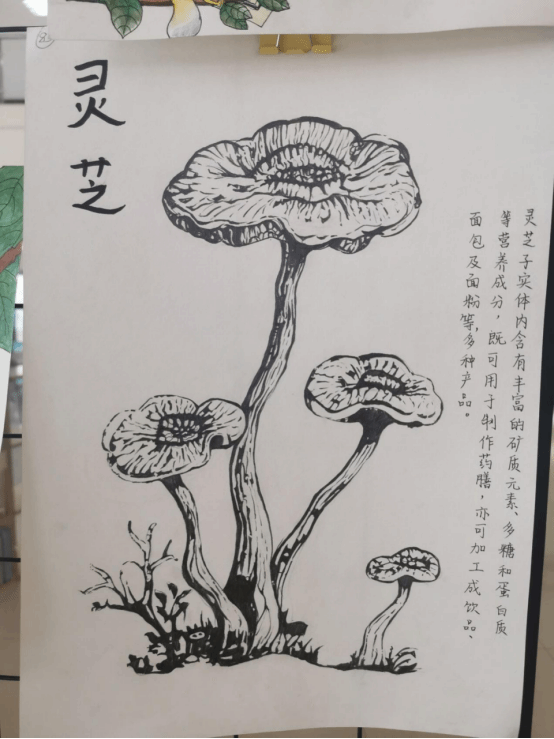 灵芝
灵芝子实体内含有丰富的矿质元素、多糖和蛋白质
等营养成分，既可用于制作药膳，亦可加工成饮品、
面包及面粉等，多种产品。